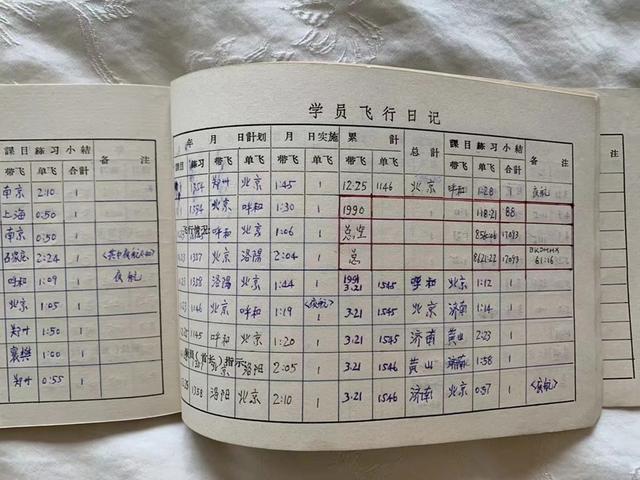 学员飞行日记
課目 練习 小結 备 注
带飞 单飞 合計
南京 2:10 1
上海 0:50 1
南京 0:50 1
2:24 1
呼和 1:09 1 夜航
北京 1:05 1
郑州 1:50 1
襄樊 1:00 1
郑州 0:55 1
年 月 日計划 月 日实施 累 計 总 計 課目 練习 小結 备 注
練习 带飞 单飞 带飞 单飞 带飞 单飞 带飞 单飞 合計
郑州 北京 1:45 1 12:25 1146 北京 呼和 1:28 1 夜航
北京 呼和 1:30 1 1990 118:21 88
飞行情况 呼和 北京 1:06 1 总
北京 洛陽 2:04 1 总 61:16
洛陽 北京 1:44 1 1991 3.21 1545 呼和 北京 1:12 1
北京 呼和 1:19 <夜航> 1 3.21 1545 北京 济南 1:14 1
1145 呼和 北京 1:20 1 3.21 1545 济南 黄山 2:23 1
(首长)指示 洛阳 2:05 1 3.21 1546 黄山 济南 1:58 1
1358 洛阳 北京 2:10 1 3.21 1546 济南 北京 0:57 1 <夜航>